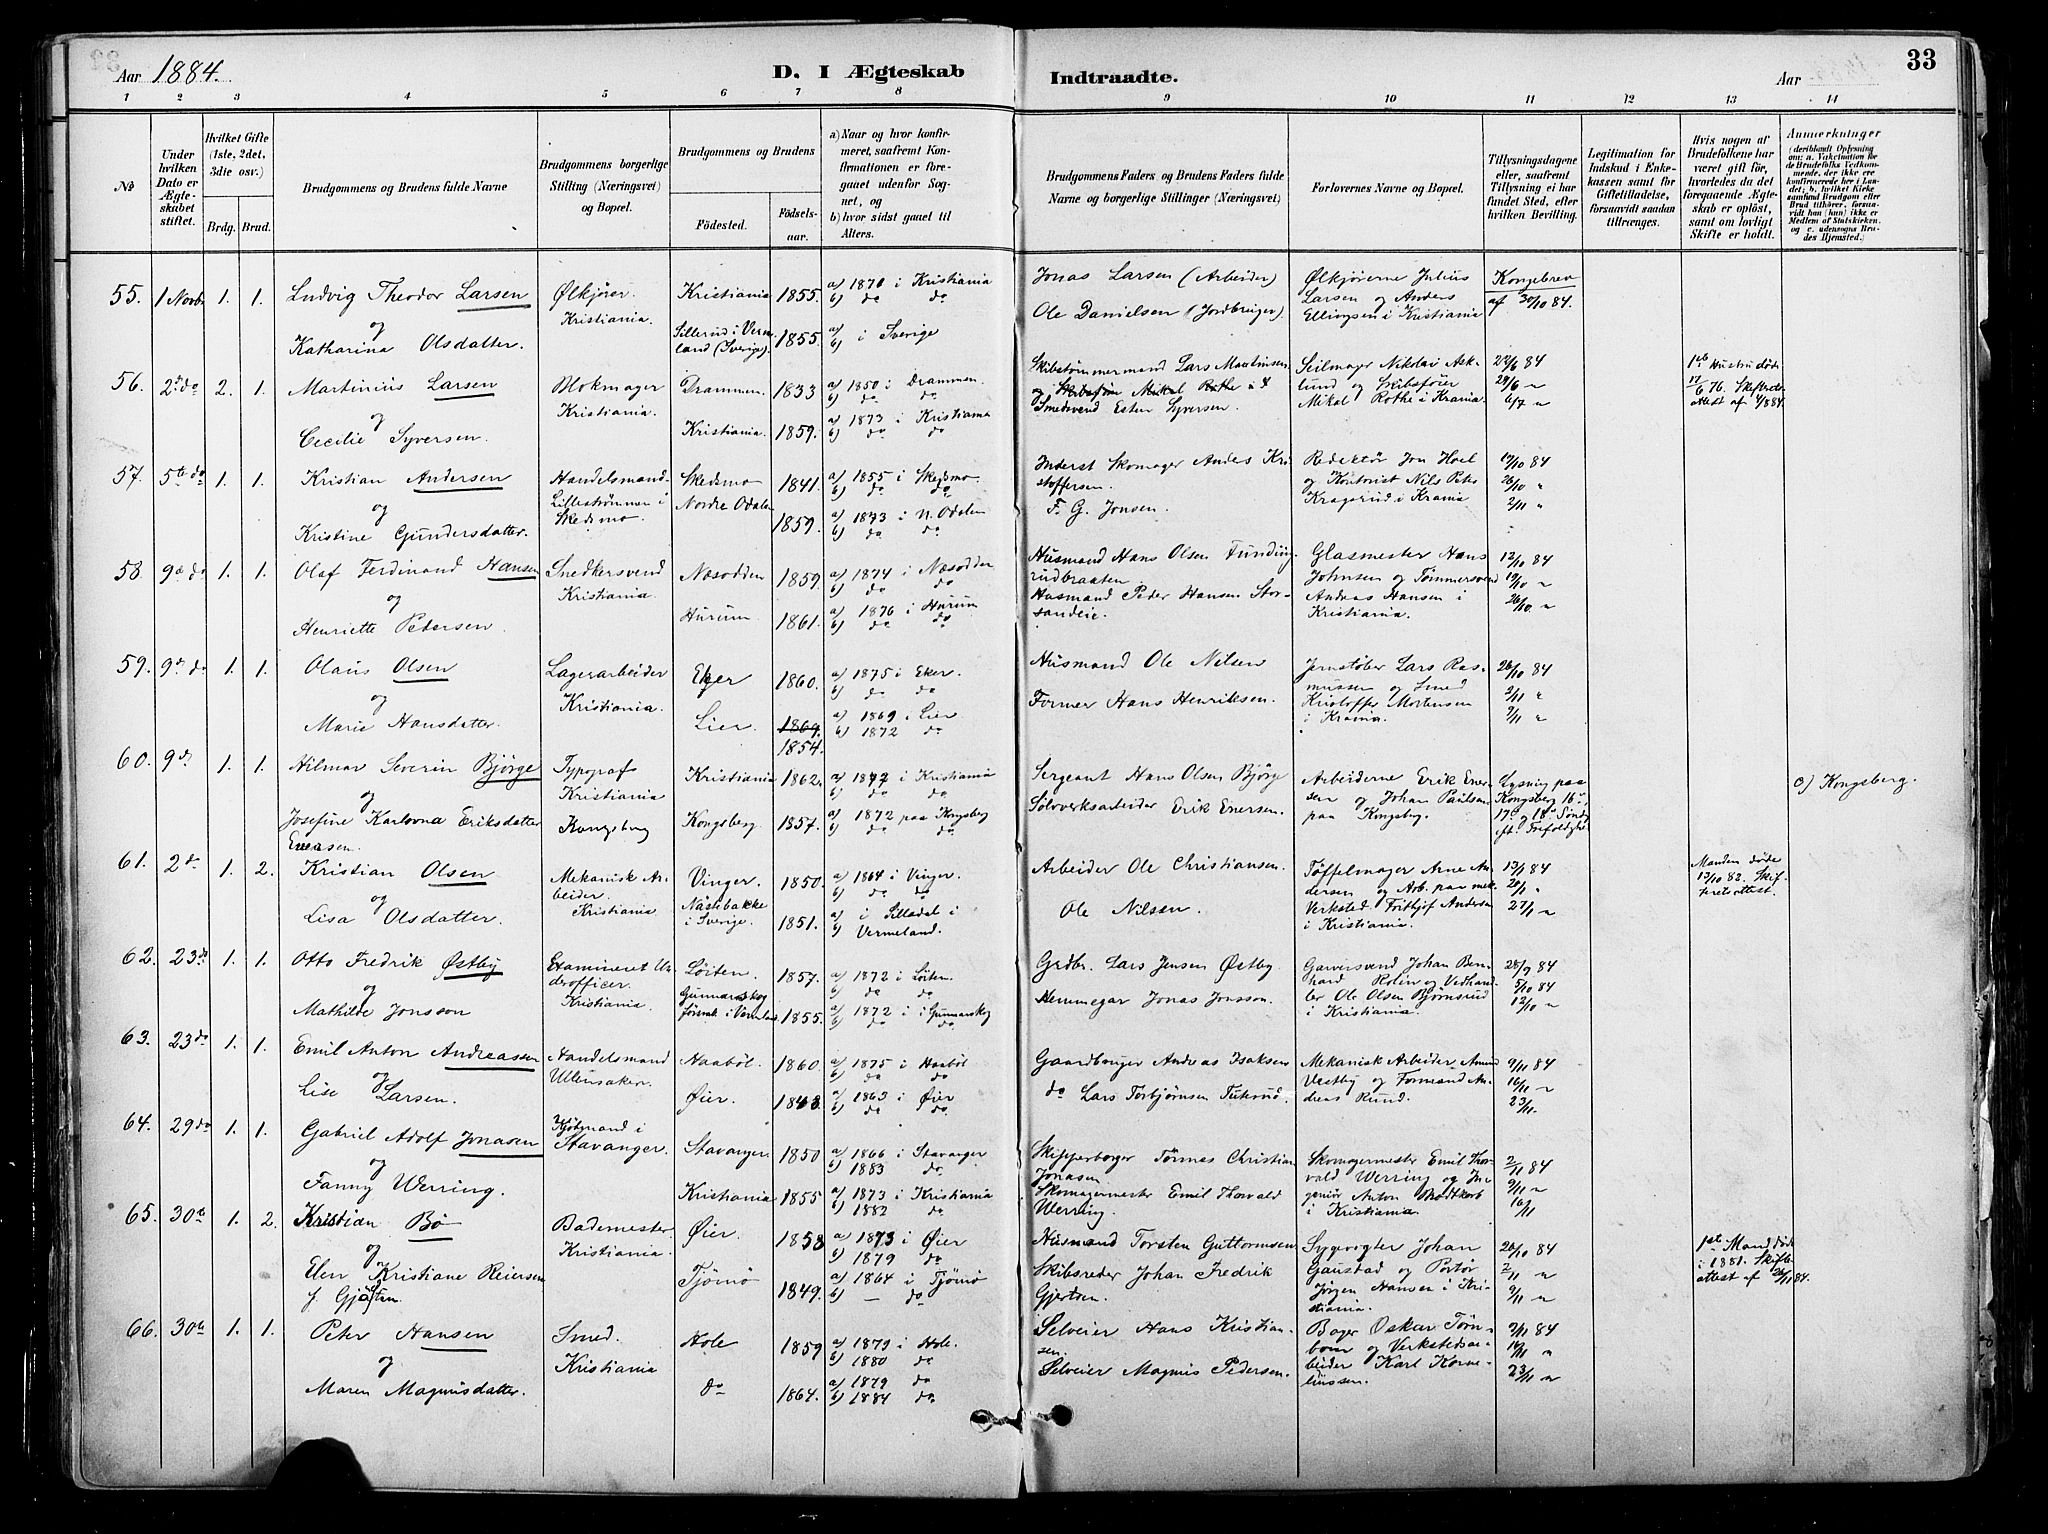 Aar 1884.
D. I Ægteskab Indtraadte.
Aar
33
1 2 3 4 5 6 7 8 9 10 11 12 13 14
No
Under hvilken Dato er Ægteskabet stiftet.
Hvilket Gifte (1ste, 2det, 3die osv.)
Brdg. Brud.
Brudgommens og Brudens fulde Navne
Brudgommens borgerlige Stilling (Næringsvei) og Bopæl.
Brudgommens og Brudens
Fødested.
Fødselsaar.
a) Naar og hvor konfirmeret, saafremt Konfirmationen er foregaaet udenfor Sognet, og
b) hvor sidst gaaet til Alters.
Brudgommens Faders og Brudens Faders fulde Navne og borgerlige Stillinger (Næringsvei)
Forlovernes Navne og Bopæl.
Tillysningsdagene eller, saafremt Tillysning ei har fundet Sted, efter hvilken Bevilling.
Legitimation for Indskud i Enkekassen samt for Giftetilladelse, forsaavidt saadan tiltrænges.
Hvis nogen af Brudefolkene har været gift før, hvorledes da det foregaaende Ægteskab er opløst, samt om lovligt Skifte er holdt.
Anmærkninger
55. 1 Novb. 1. 1. Ludvig Theodor Larsen
og
Katharina Olsdatter.
Ølkjører.
Kristiania.
Kristiania 1855.
Sillerud i Vermland (Sverige). 1855.
a) 1870 i Kristiania
b) do do
a) i Sverige
b)
Jonas Larsen (Arbeider)
Ole Danielsen (Jordbruger).
Ølkjørerne Julius
Larsen og Anders
Ellingsen i Kristiania
Kongebrev
af 30/10 84.
56. 2 do 2. 1. Martinius Larsen
og
Cecilie Syversen.
Blokmager
Kristiania.
Drammen. 1833
Kristiania. 1859.
a) 1850 i Drammen.
b) do do
a) 1873 i Kristiania
b) do do
Skibstømmermand Lars Martinsen
Smedsvend Esten Syversen.
Seilmager Nikolai Asklund og Skibsfører
Mikal Rothe i Krania.
22/6 84
29/6 "
6/7 "
1ste Hustru døde
17/6 76. Skifteattest af 4/8 84.
57. 5te do 1. 1. Kristian Andersen
og
Kristine Gundersdatter.
Handelsmand
Lillestrømmen i
Skedsmo.
Skedsmo 1841.
Nordre Odalen 1859.
a) 1855 i Skedsmo.
b) do do
a) 1873 i N. Odalen
b) do do
Inderst Skomager Andes Kristoffersen.
F. G. Jonsen.
Redektør Jon Hoel
og Kontorist Nils Peter
Kragerud i Krania
19/10 84
26/10 "
2/11 "
58. 9de do 1. 1. Olaf Ferdinand Hansen
og
Henriette Pedersen.
Snedkersvend
Kristiania.
Næsodden 1859.
Hurum 1861.
a) 1874 i Næsodden
b) do do
a) 1876 i Hurum
b) do do
Husmand Hans Olsen Fundingrudbraaten.
Husmand Peder Hansen Storsandeie.
Glasmester Hans
Johnsen og Tømmersvend
Andreas Hansen i
Kristiania.
12/10 84
19/10 "
26/10 "
59. 9 do 1. 1. Olaus Olsen
og
Marie Hansdatter.
Lagerarbeider
Kristiania.
Eger 1860.
Lier. 1869. 1854.
a) 1875 i Eker.
b) do do
a) 1869 i Lier
b) 1872 do
Husmand Ole Nilsen
Former Hans Henriksen.
Jernstøber Lars Rasmussen og Smed
Kristoffer Mortensen
i Krania.
26/10 84
2/11 "
9/11 "
60. 9 do 1. 1. Hilmar Severin Bjørge
og
Josefine Karlovna Eriksdatter
Enersen.
Typograf
Kristiania
Kongsberg
Kristiania 1862.
Kongsberg. 1857.
a) 1877 i Kristiania
b) do do
a) 1872 paa Kongsberg
b) do do
Sergeant Hans Olsen Bjørge
Sølvverksarbeider Erik Enersen.
Arbeiderne Erik Enersen og Johan Paulsen
paa Kongsberg.
Lysning paa
Kongsberg 16.,
17. og 18. Søndg
eft. Trefoldighed
c) Kongsberg.
61. 2 do 1. 2. Kristian Olsen
og
Lisa Olsdatter.
Mekanisk Arbeider.
Kristiania
Vinger. 1850.
i Sverige. 1851.
a) 1864 i Vinger.
b) do do
a) i Silledal i
b) Vermeland.
Arbeider Ole Christiansen.
Ole Nilsen.
Tøffelmager Arne Andersen og Arb. paa mek.
Verksted Frithjof Andersen
i Kristiania.
13/1 84
20/1 "
27/1 "
Manden døde
13/10 82. Skifteretsattest.
62. 23 do 1. 1. Otto Fredrik Østby
og
Mathilde Jonsson
Examineret Underofficer.
Kristiania.
Løiten. 1857.
Gunnarskog 1855.
a) 1872 i Løiten.
b) do do
a) 1872 i Gunnarskog
b) do do
Grdbr. Lars Jensen Østby
Hemmegar Jonas Jonsson.
Garversvend Johan Bernhard Rolin og Vedhandler Ole Olsen Bjørnsrud
i Kristiania.
28/9 84
5/10 84
12/10 "
63. 23 do 1. 1. Emil Anton Andreassen
og
Lise Larsen.
Handelsmand
Ullensaker.
Haabøl. 1860
Øier. 1843.
a) 1875 i Haabøl
b) do do
a) 1863 i Øier
b) do do
Gaardbruger Andreas Isaksen
do Lars Torbjørnsen Tuterud.
Mekanisk Arbeider Amund
Vestby og Formand Andreas Ruud.
9/11 84
16/11 "
23/11.
64. 29 do 1. 1. Gabriel Adolf Jonasen
og
Fanny Werring.
Kjøbmand i
Stavanger.
Stavanger. 1850
Kristiania 1855
a) 1866 i Stavanger
b) 1883 do
a) 1873 i Kristiania
b) 1882 do
Skipperborger Tønnes Christian
Jonasen
Skomagermester Emil Thorvald
Werring.
Skomagermester Emil Thorvald Werring og Ingeniør Anton
i Kristiania.
2/11 84
9/11 "
16/11
65. 30te 1. 2. Kristian Bø
og
Elen Kristiane Reiersen
f. Gjertsen.
Bademester
Kristiania.
Øier. 1858
Tjømø 1849.
a) 1873 i Øier
b) 1879 do
a) 1864 i Tjømø
b) — do
Husmand Torsten Guttormsen
Skibsreder Johan Fredrik
Gjertsen.
Sygevogter Johan
Gaustad og Portør
Jørgen Hansen i Kristiania.
26/10 84
2/11 "
9/11 "
1ste Mand døde
i 1881. Skifteattest af 26/11 84.
66. 30te 1. 1. Peter Hansen
og
Maren Magnusdatter.
Smed.
Kristiania
Hole 1859
do 1864.
a) 1873 i Hole.
b) 1880 do
a) 1879 do
b) 1884 do
Selveier Hans Kristiansen.
Selveier Magnus Pedersen.
Bager Oskar Tørnbom og Verkstedsarbeider Karl Korneliussen.
9/11 84
16/11 "
23/11 "